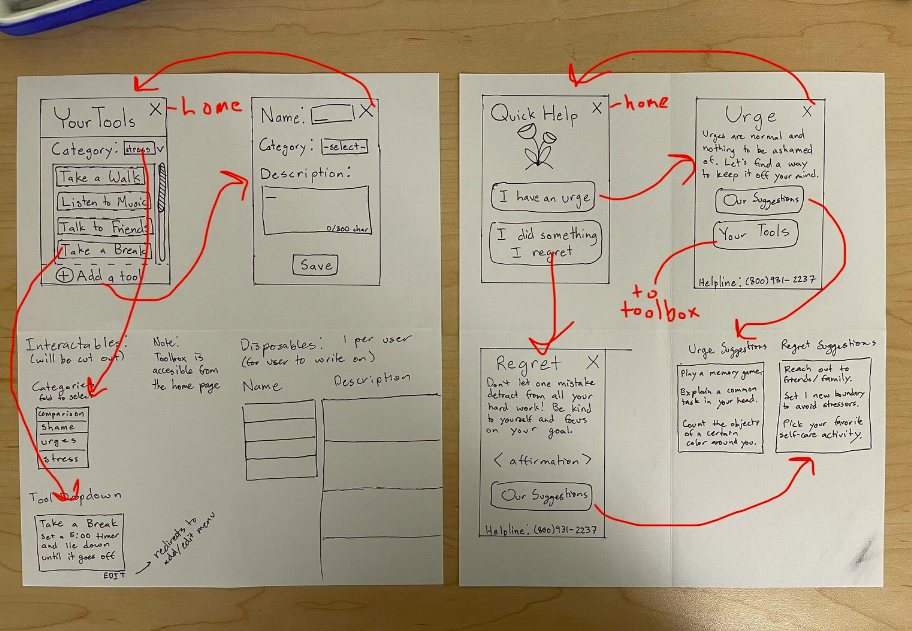 Your Tools X
home
Category: stress v
Take a Walk
Listen to Music
Talk to Friends
Take a Break
+ Add a tool
X
Name:
Category: -select-
Description:
0/300 char
Save
Interactables:
(will be cut out)
Categories
fold to select
comparison
shame
urges
stress
Tool Dropdown
Take a Break
set a 5:00 timer
and lie down
until it goes off
EDIT
redirects to
add/edit menu
Note:
Toolbox is
accesible from
the home page
Disposables: 1 per user
(for user to write on)
Name
Description
Quick Help X
home
I have an urge
I did something
I regret
Urge X
Urges are normal and
nothing to be ashamed
of. Let's find a way
to keep it off your mind.
Our Suggestions
Your Tools
Helpline: (800) 931-2237
to
toolbox
Regret X
Don't let one mistake
detract from all your
hard work! Be kind
to yourself and focus
on your goal.
< affirmation >
Our Suggestions
Helpline: (800) 931-2237
Urge Suggestions
Play a memory game.
Explain a common
task in your head.
Count the objects
of a certain
color around you.
Regret Suggestions
Reach out to
friends/family.
Set 1 new boundary
to avoid stressors.
Pick your favorite
self-care activity.